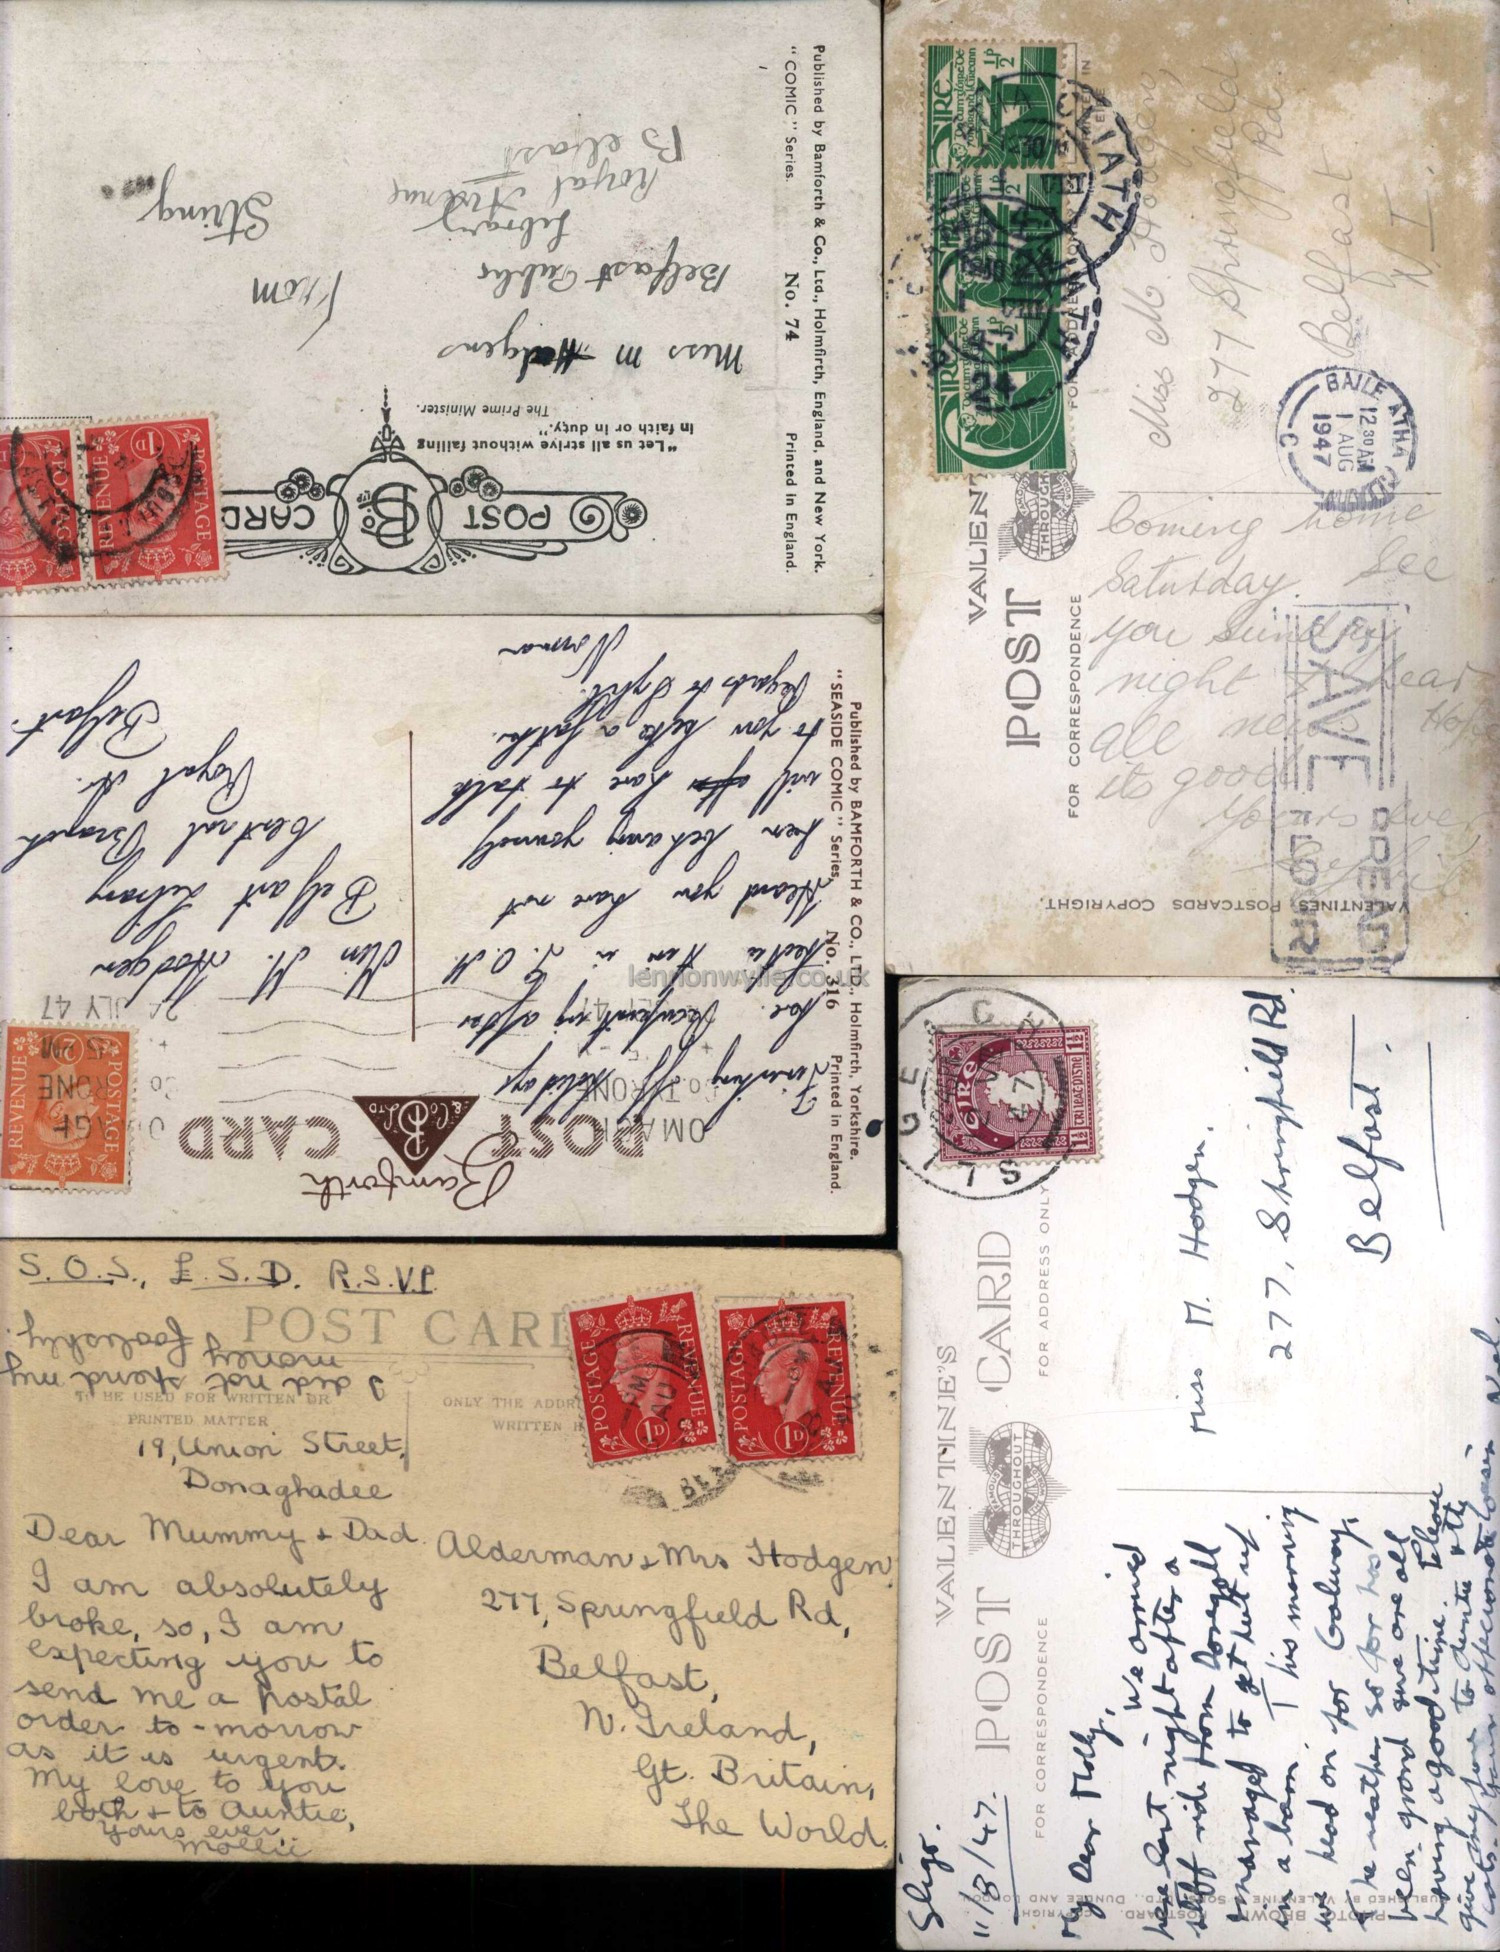 Published by Bamforth & Co., Ltd., Holmfirth, England, and New York.
"COMIC" Series.
No. 74
Printed in England.
POST CARD
"Let us all strive without falling
in faith or in duty."
The Prime Minister.
Miss M Hodgens
Belfast Public
Library
Royal Avenue
Belfast
From
String
POSTAGE
REVENUE
1D
EIRE
BAILE ATHA CLIATH
12 30 AM
1 AUG
1947
SAVE
BREAD
FLOUR
VALENTINE'S
POST
THROUGHOUT
FOR CORRESPONDENCE
VALENTINES POSTCARDS COPYRIGHT.
Miss M. Hodgen,
277 Springfield
Rd.
Belfast
N. I.
Coming home
Saturday. See
you Sunday
night & hear
all news Hope
its good
Yours ever
Published by BAMFORTH & CO., LTD., Holmfirth, Yorkshire.
"SEASIDE COMIC" Series,
No. 316
Printed in England.
Bamforth
& Co LTD
POST CARD
OMAGH
Co TYRONE
JLY 47
POSTAGE
REVENUE
Finishing off holidays
here. Recuperating after
hectic time in I.O.M.
Heard you have not
been behaving yourself
will have to talk
to you like a father.
Regards to Sybil.
Norman
Miss M. Hodgen
Belfast Library
Central Branch
Royal Av.
Belfast.
lennonwylie.co.uk
S.O.S., £.S.D. R.S.V.P.
I did not spend my
money foolishly.
POST CARD
TO BE USED FOR WRITTEN OR
PRINTED MATTER
ONLY THE ADDR
WRITTEN H
POSTAGE REVENUE
1D
POSTAGE REVENUE
1D
19, Union Street,
Donaghadee
Dear Mummy & Dad
I am absolutely
broke, so, I am
expecting you to
send me a postal
order to-morrow
as it is urgent.
My love to you
both & to Auntie,
Yours ever
Mollie
Alderman & Mrs Hodgen,
277, Springfield Rd,
Belfast,
N. Ireland,
Gt. Britain,
The World.
SLIGEACH
EIRE
1½
VALENTINE'S
POST CARD
THROUGHOUT
FOR CORRESPONDENCE
FOR ADDRESS ONLY
Sligo.
11/8/47.
My dear Molly,
We arrived
here last night after a
stiff ride from Donegall
& managed to get put up
in a barn. This morning
we head on for Galway,
The weather so far has
been grand & we are all
having a good time. Please
give my love to Auntie & the
Miss M. Hodgen.
277, Springfield Rd.
Belfast.